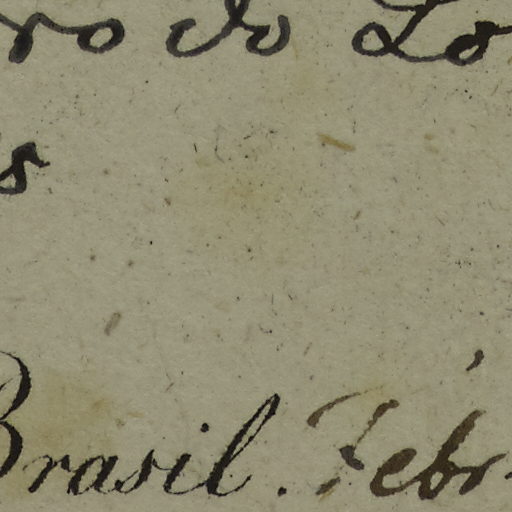 ro do Lo
s
Brasil. Febr.